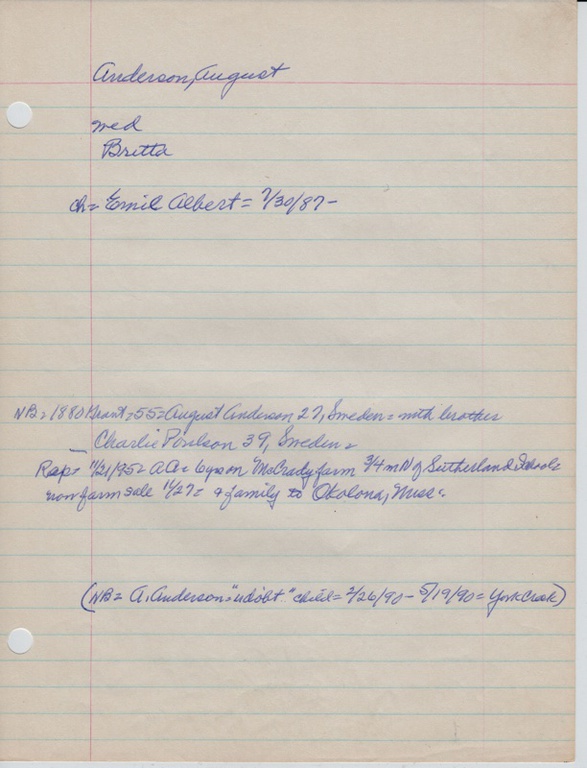 Anderson, August
wed
Britta
ch = Emil Albert = 7/30/87 -
NB = 1880 Grant, 55 = August Anderson 27, Sweden = with brother
Charlie Poulson 39, Sweden =
Rap = 11/21/95 = AA = 6 yrs on McCrady farm 3/4 m N of Sutherland Schools
now farm sale 11/27 = & family to Okolona, Miss.
(NB = A. Anderson child = 2/26/90 - 5/19/90 = York Crek)